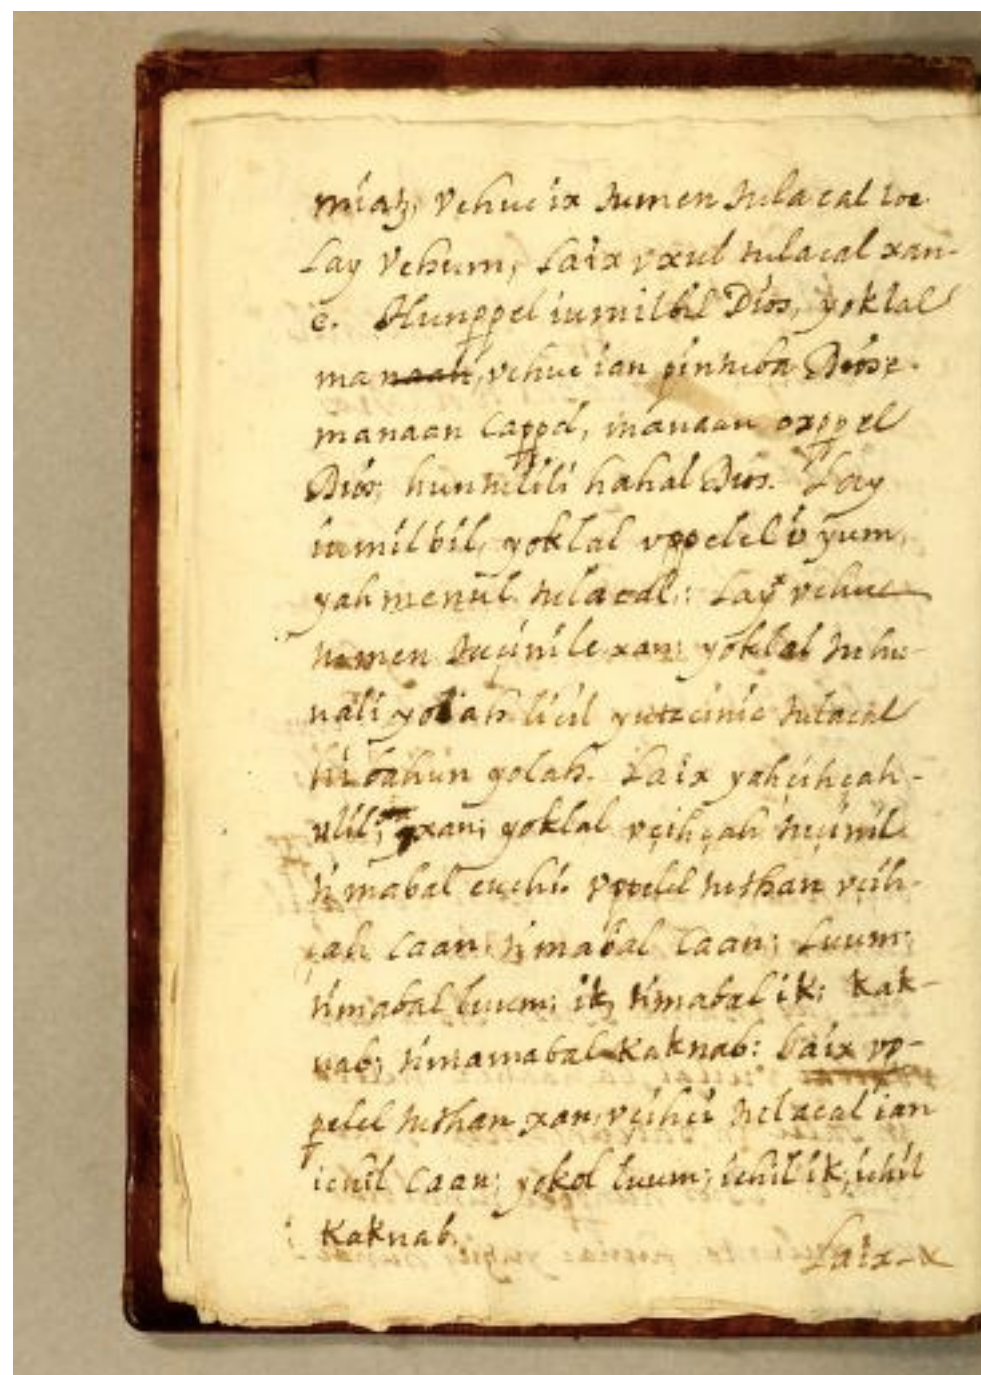 miatz, Vchuc ix tumen tulacal loe
Lay Vchum, Laix vxul tulacal xan-
e. Hunppel iumilbil Dios, yoklal
manaan, vchuc ian pintuba Diose.
manaan cappel, manaan oxppel
Dios; huntulili hahal Dios. Lay
iumilbil, yoklal vppelel v yum,
yah menul tulacal: Lay vchuc
tumen tuçinile xan; yoklal tuhu-
nali yolah licil yutzcinic tulacal
ti bahun yolah. Laix yahçihçah-
ulil; xan; yoklal vçihçah tuçinil
ti mabal cuchi. Vppelel tuthan vçih-
çah caan; ti mabal caan; Luum;
ti mabal luum; ik, ti mabal ik; Kak-
nab; ti mamabal Kaknab: Laix vp-
pelel tuthan xan, vçihci tulacal ian
ichil caan; yokol luum; ichil ik; ichil
Kaknab.
Laix